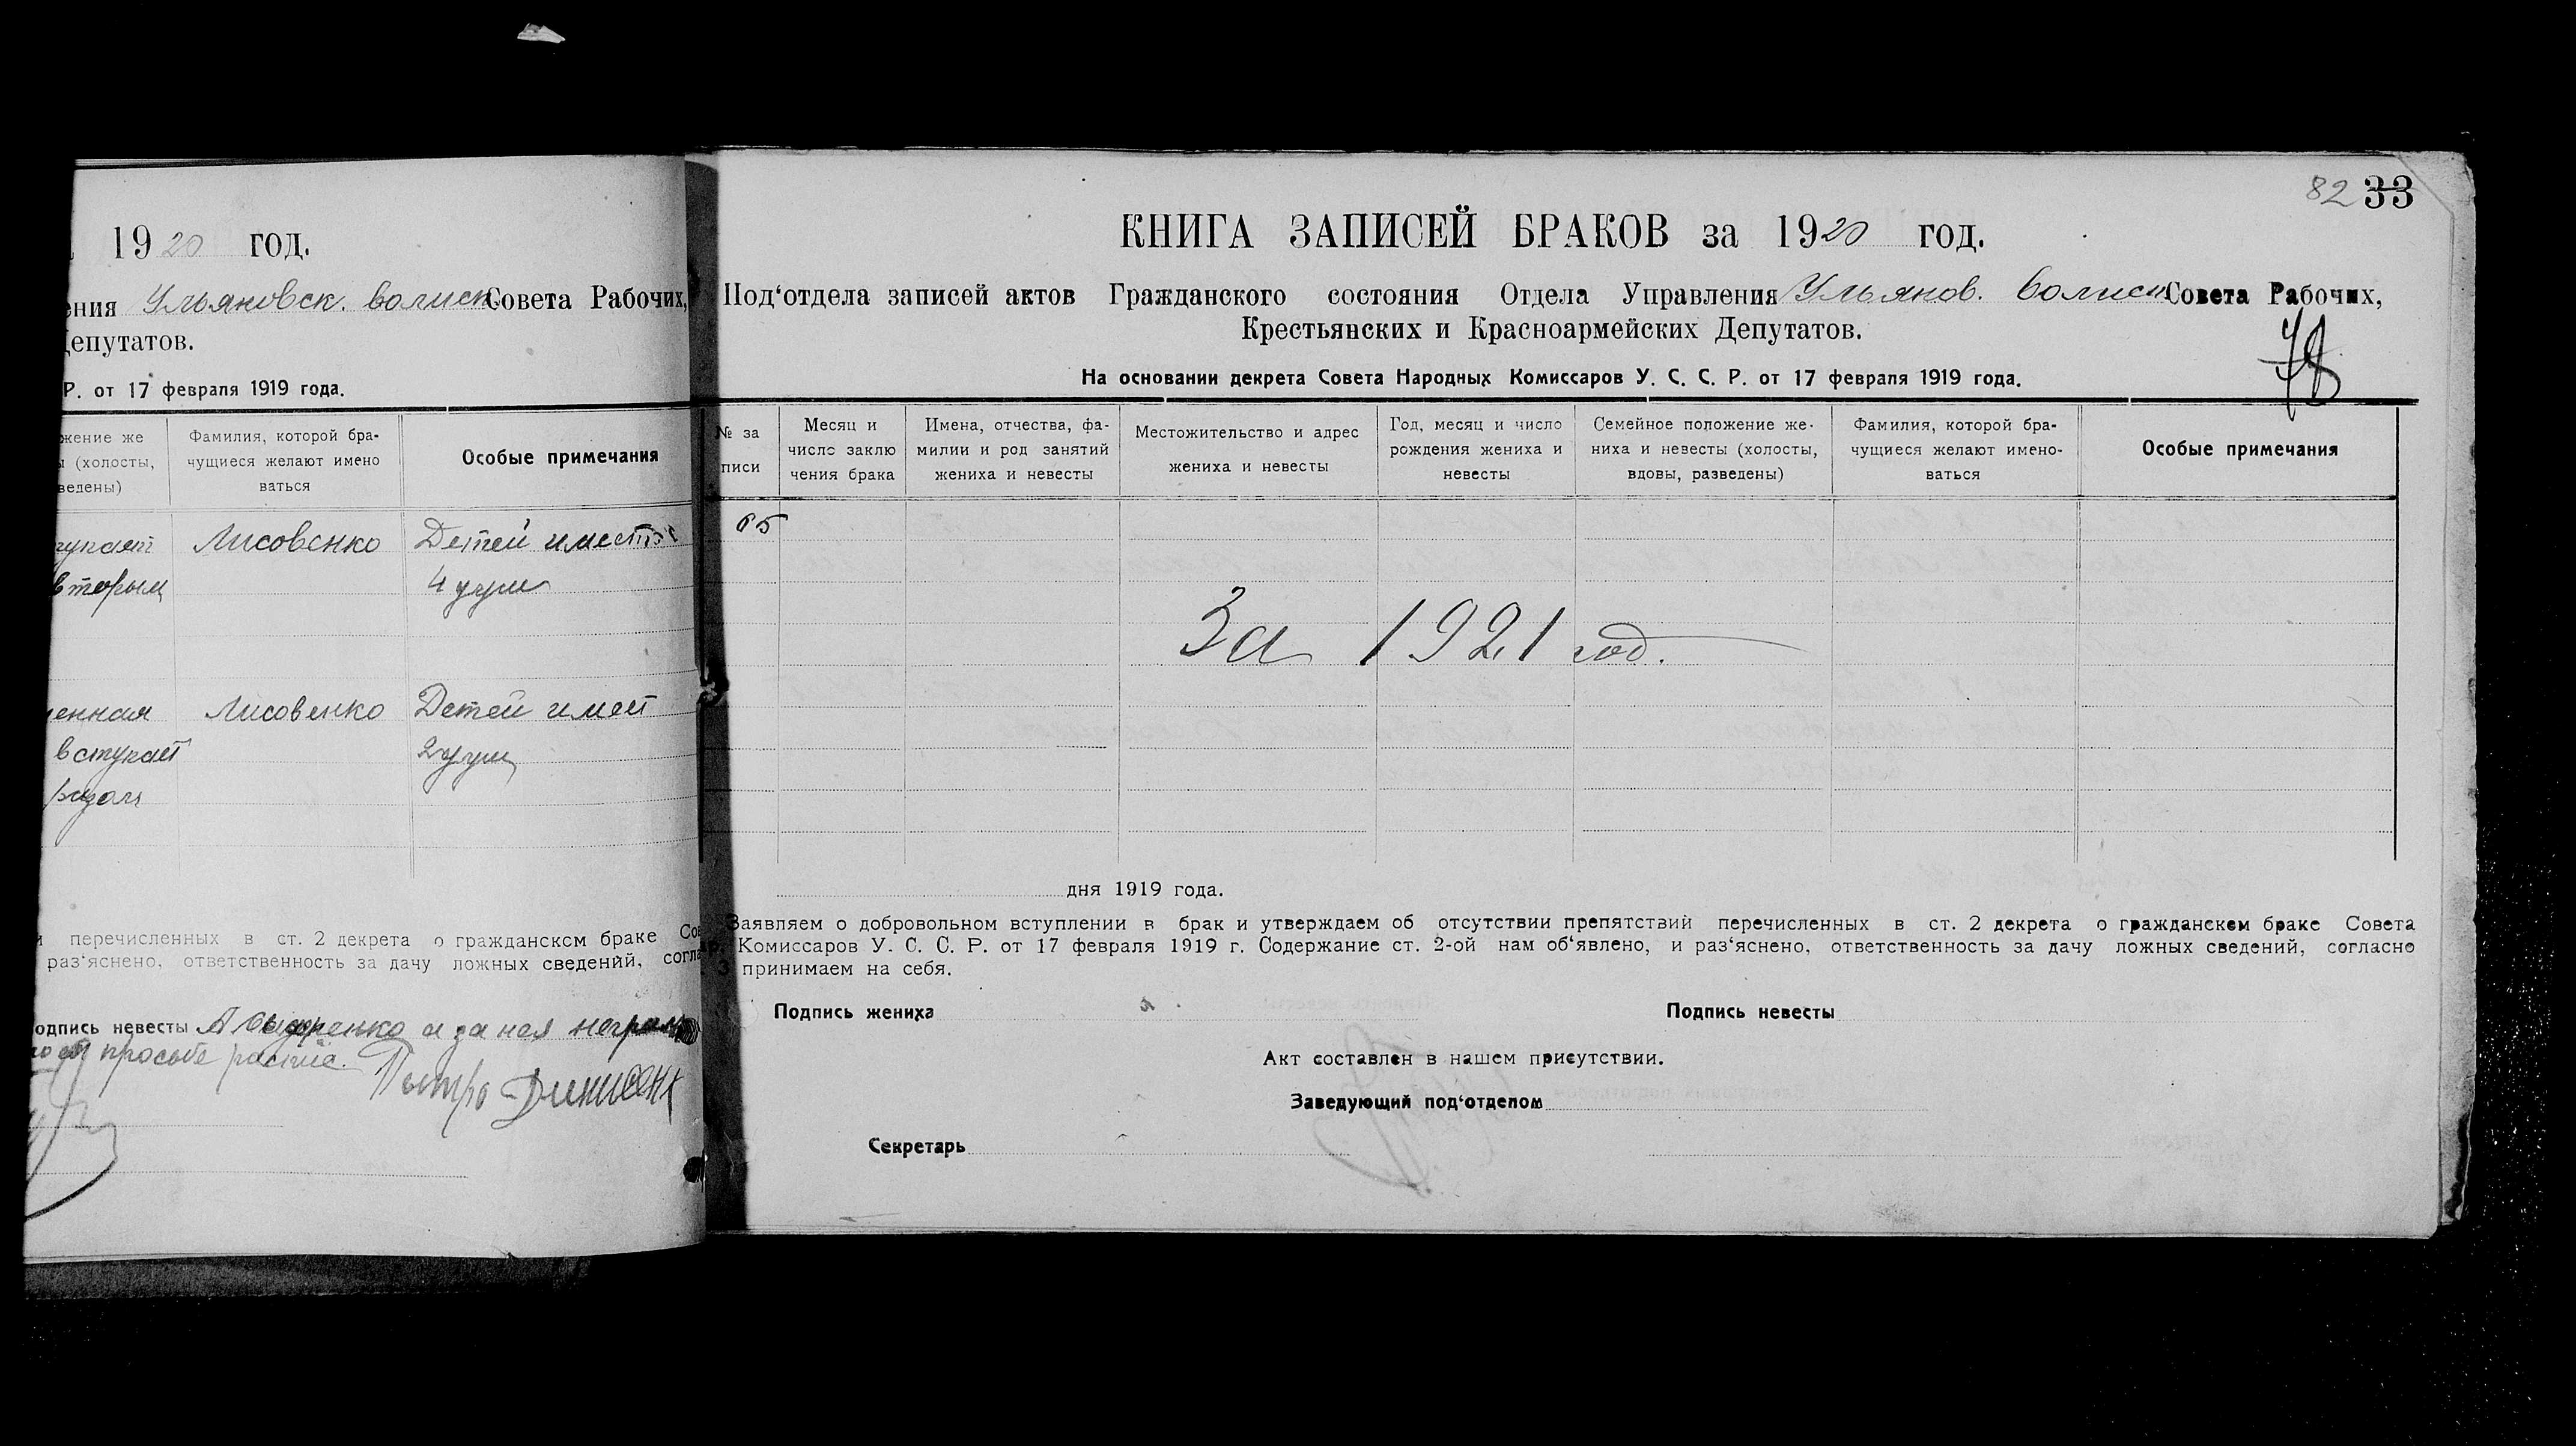 1920 год.
ения Ульяновск. волисп. Совета Рабочих,
епутатов.
Р. от 17 февраля 1919 года.
жение же
(холосты,
ведены)
Фамилия, которой бра-
чущиеся желают имено
ваться
Особые примечания
тупает Лисовенко Детей имеется
вторым 4 душ
Лисовенко Детей имеет
вступает 2 душ
перечисленных в ст. 2 декрета о гражданском браке Сов
раз‘яснено, ответственность за дачу ложных сведений, согла
одпись невесты а за нея неграм
просьбе
Пьотро
82 33
КНИГА ЗАПИСЕЙ БРАКОВ за 1920 год.
Под‘отдела записей актов Гражданского состояния Отдела Управления Ульянов. волисп. Совета Рабочих,
Крестьянских и Красноармейских Депутатов.
78
На основании декрета Совета Народных Комиссаров У. С. С. Р. от 17 февраля 1919 года.
№ за
писи
Месяц и
число заклю
чения брака
Имена, отчества, фа-
милии и род занятий
жениха и невесты
Местожительство и адрес
жениха и невесты
Год, месяц и число
рождения жениха и
невесты
Семейное положение же-
ниха и невесты (холосты,
вдовы, разведены)
Фамилия, которой бра-
чущиеся желают имено-
ваться
Особые примечания
65
За 1921 год.
дня 1919 года.
Заявляем о добровольном вступлении в брак и утверждаем об отсутствии препятствий перечисленных в ст. 2 декрета о гражданском браке Совета
Комиссаров У. С. С. Р. от 17 февраля 1919 г. Содержание ст. 2-ой нам об‘явлено, и раз‘яснено, ответственность за дачу ложных сведений, согласно
3 принимаем на себя.
Подпись жениха Подпись невесты
Акт составлен в нашем присутствии.
Заведующий под‘отделом
Секретарь